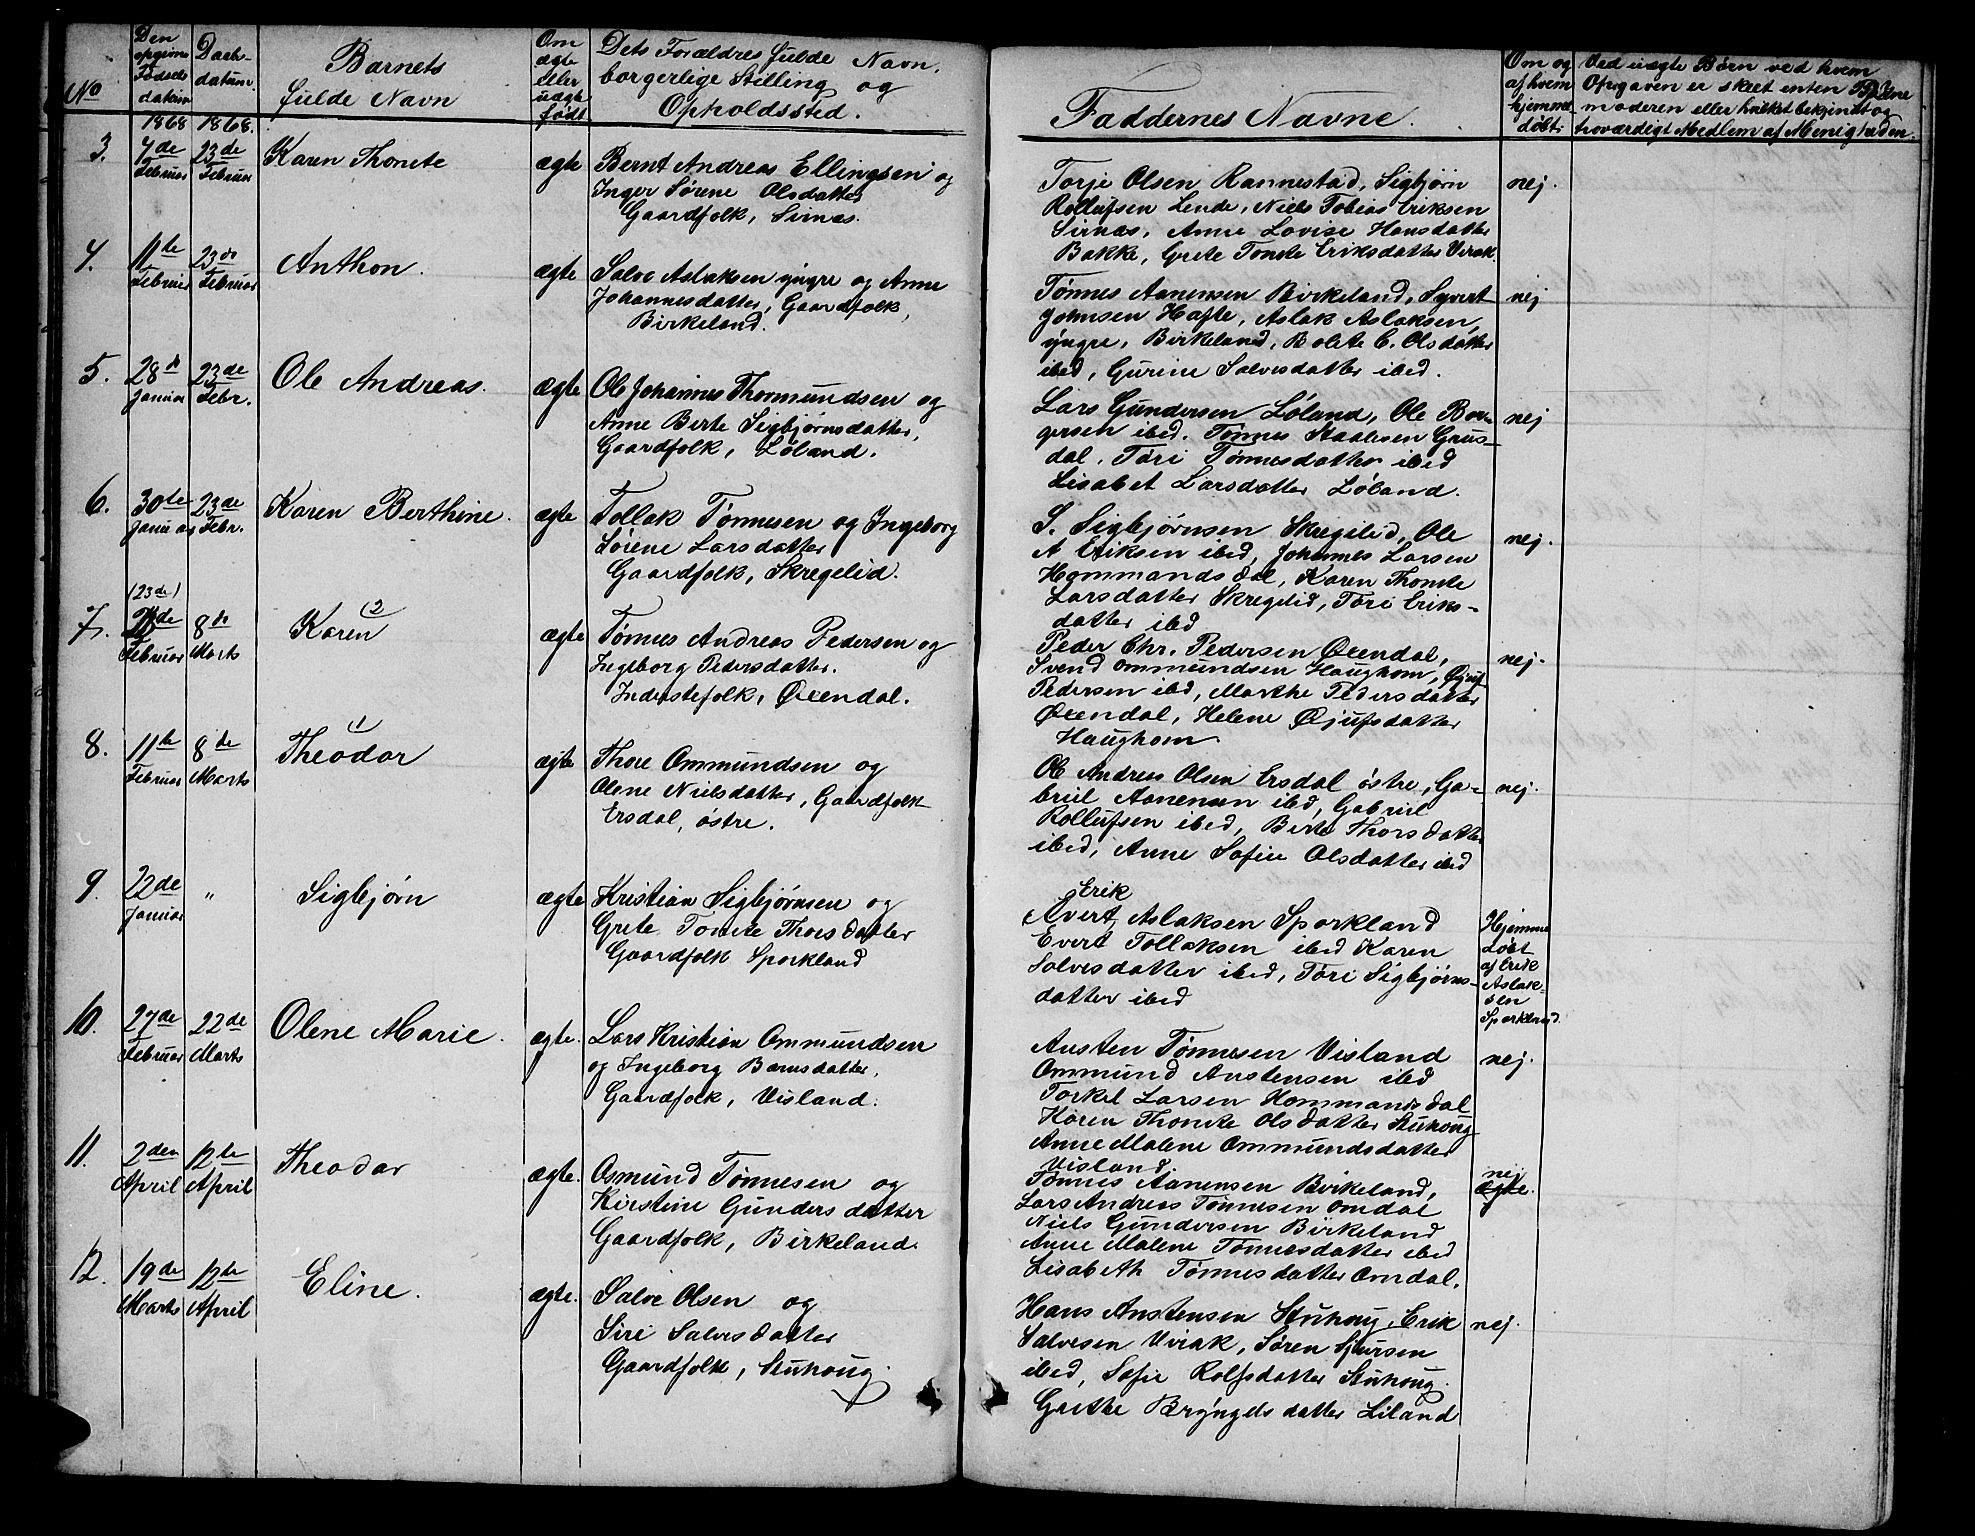 No
Den opgivne Fødsels datum
Daabs-datum.
Barnets fulde Navn
Om ægte eller uægte født
Dets Forældres fulde Navn, borgerlige Stilling og Opholdssted.
Faddernes Navne.
Om og af hvem hjemmedøbt
Ved uægte Børn ved hvem Opgaven er skeet enten moderen eller hvilket bekjendt og troværdigt Medlem af Menigheden.
1868 1868.
3. 7de Februar 23de Februar Karen Thonete ægte
Bernt Andreas Ellingsen og
Inger Sørene Olsdatter
Gaardfolk, Sirnæs.
Torje Olsen Rannestad, Sigbjørn
Rollufsen Lende, Niels Tobias Eriksen
Sirnæs, Anne Lovise Hansdatter
Bakke, Grete Tonete Eriksdatter Virak.
nej.
4. 11te Februar 23de Februar Anthon. ægte
Salve Aslaksen yngre og Anne
Johannesdatter, Gaardfolk,
Birkeland.
Tønnes Aanensen Birkeland, Syvert
Johnsen Hafte, Aslak Aslaksen,
yngre, Birkeland, Bolete C. Olsdatter
ibed, Gurine Salvesdatter ibed.
nej
5. 28de Januar 23de Febr. Ole Andreas. ægte
Ole Johannes Thormundsen og
Anne Berte Sigbjørnsdatter,
Gaardfolk, Løland.
Lars Gundersen Løland, Ole Bør-
gesen ibed. Tønnes Staalesen Grus-
dal, Tøri Tønnesdatter ibed
Lisabet Larsdatter Løland.
nej
6. 30te Januar 23de Febr. Karen Berthine. ægte
Tollak Tønnesen og Ingeborg
Sørene Larsdatter
Gaardfolk, Skregelid.
S. Sigbjørnsen Skregelid, Ole
A Eriksen ibed, Johannes Larsen
Hammandsdal, Karen Thonete
Larsdatter Skregelid, Tøri Eriks-
datter ibed
nej.
(23de)
7. Februar 8de Marts Karen (2 ægte
Tønnes Andreas Pedersen og
Ingeborg Pedersdatter.
Inderstefolk, Øxendal.
Peder Chr. Pedersen Øxendal,
Svend Ommundsen Haughom, Øjuf
Pedersen ibd, Marthe Pedersdatter
Øxendal, Helene Øjufsdatter
Haughom.
nej.
8. 11te Februar 8de Marts Theodor (1 ægte
Thore Ommundsen og
Olene Nielsdatter, Gaardfolk
Ersdal, østre.
Ole Andreas Olsen Ersdal østre, Ga-
briel Aanensen ibd, Gabriel
Rollufsen ibed, Berte Thorsdatter
ibed, Anne Sofie Olsdatter ibed
nej.
9. 22de Januar " Sigbjørn ægte
Kristian Sigbjørnsen og
Grete Tonete Thorsdatter
Gaardfolk Sporkland
Erik
Avert Aslaksen Sporkland
Evert Tollaksen ibed Karen
Salvesdatter ibed, Tøri Sigbjørns-
datter ibed
Hjemme
døbt
af Erik
Aslak-
sen
Sporkland.
10. 27de Februar 22de Marts Olene Marie. ægte.
Lars Kristian Ommundsen
og Ingeborg Børnsdatter,
Gaardfolk, Visland.
Austen Tønnesen Visland
Ommund Austensen ibd
Torkel Larsen Hommandsdal
Karen Thonete Olsdatter Stuhoug
Anne Malene Ommundsdatter
Visland
nej.
11. 2den April 12te April Theodor ægte.
Osmund Tønnesen og
Kirstine Gundersdatter
Gaardfolk, Birkeland.
Tønnes Aanensen Birkeland,
Lars Andreas Tønnesen Omdal
Niels Gundersen Birkeland
Anne Malene Tønnesdatter ibed
Lisabeth Tønnesdatter Omdal.
nej
ægte.
12. 19de Marts 12te April Eline. ægte.
Salve Olsen og
Siri Salvesdatter
Gaardfolk, Stuhoug.
Hans Austensen Stuhoug, Erik
Salvesen Virak, Søren Sjursen
ibed, Sofie Rolfsdatter Stuhoug.
Grethe Bryngelsdatter Liland
nej.